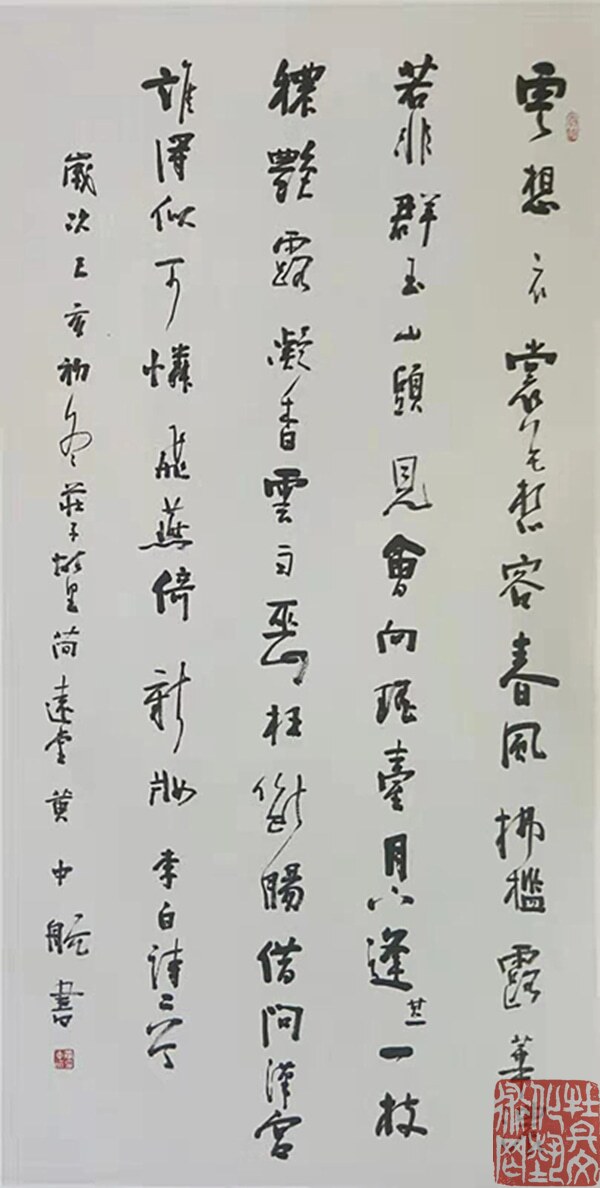 雲想衣裳花想容春風拂檻露華濃
若非群玉山頭見會向瑤臺月下逢其一一枝
穠豔露凝香雲雨巫山枉斷腸借問漢宮
誰得似可憐飛燕倚新妝李白詩二首
歲次己亥初冬莊子故里簡遠堂黃中航書